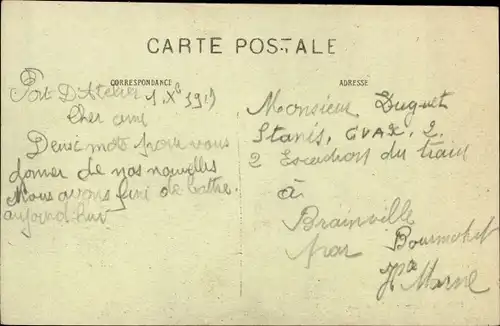 CARTE POSTALE
CORRESPONDANCE
ADRESSE
Port D'Atelier
Cher ami
Deux mots pour vous
donner de nos nouvelles
Nous avons fini de battre
aujourd'hui
Monsieur Duguet
Stanis, CVAX, 2.
2 Escadron du train
à
Brainville
par Bourmont
Hte Marne